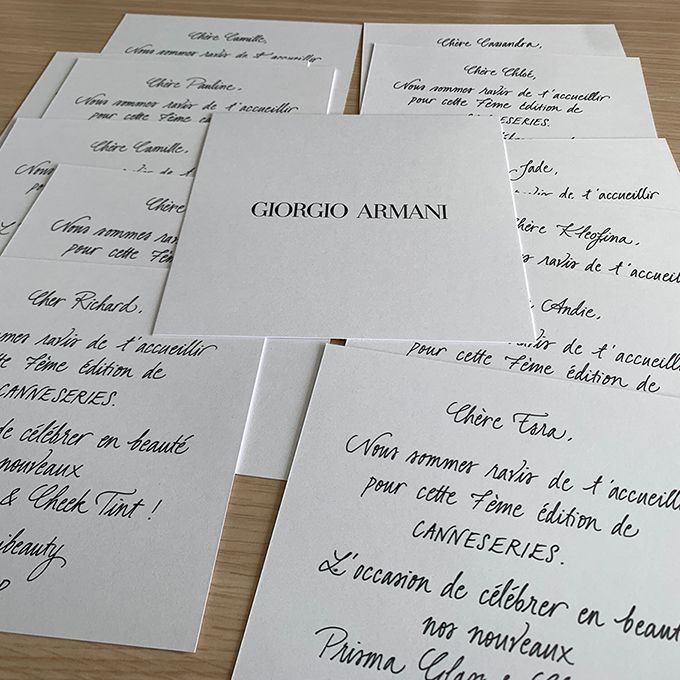 Chère Camille,
Nous sommes ravis de t'accueillir
Chère Pauline,
Nous sommes ravis de t'accueillir
pour cette 7ème édition de
Chère Camille,
Nous
Chère
Nous sommes ravis
pour cette 7ème
Cher Richard,
sommes ravis de t'accueillir
cette 7ème édition de
CANNESERIES.
de célébrer en beauté
nouveaux
& Cheek Tint !
GIORGIO ARMANI
Chère Cassandra,
Chère Chloé,
Nous sommes ravis de t'accueillir
pour cette 7ème édition de
CANNESERIES.
Jade,
ravis de t'accueillir
Chère Kleofina,
ravis de t'accueilli
Andie,
ravis de t'accueillir
pour cette 7ème édition de
Chère Esra,
Nous sommes ravis de t'accueilli
pour cette 7ème édition de
CANNESERIES.
L'occasion de célébrer en beaut
nos nouveaux
Prisma Glass